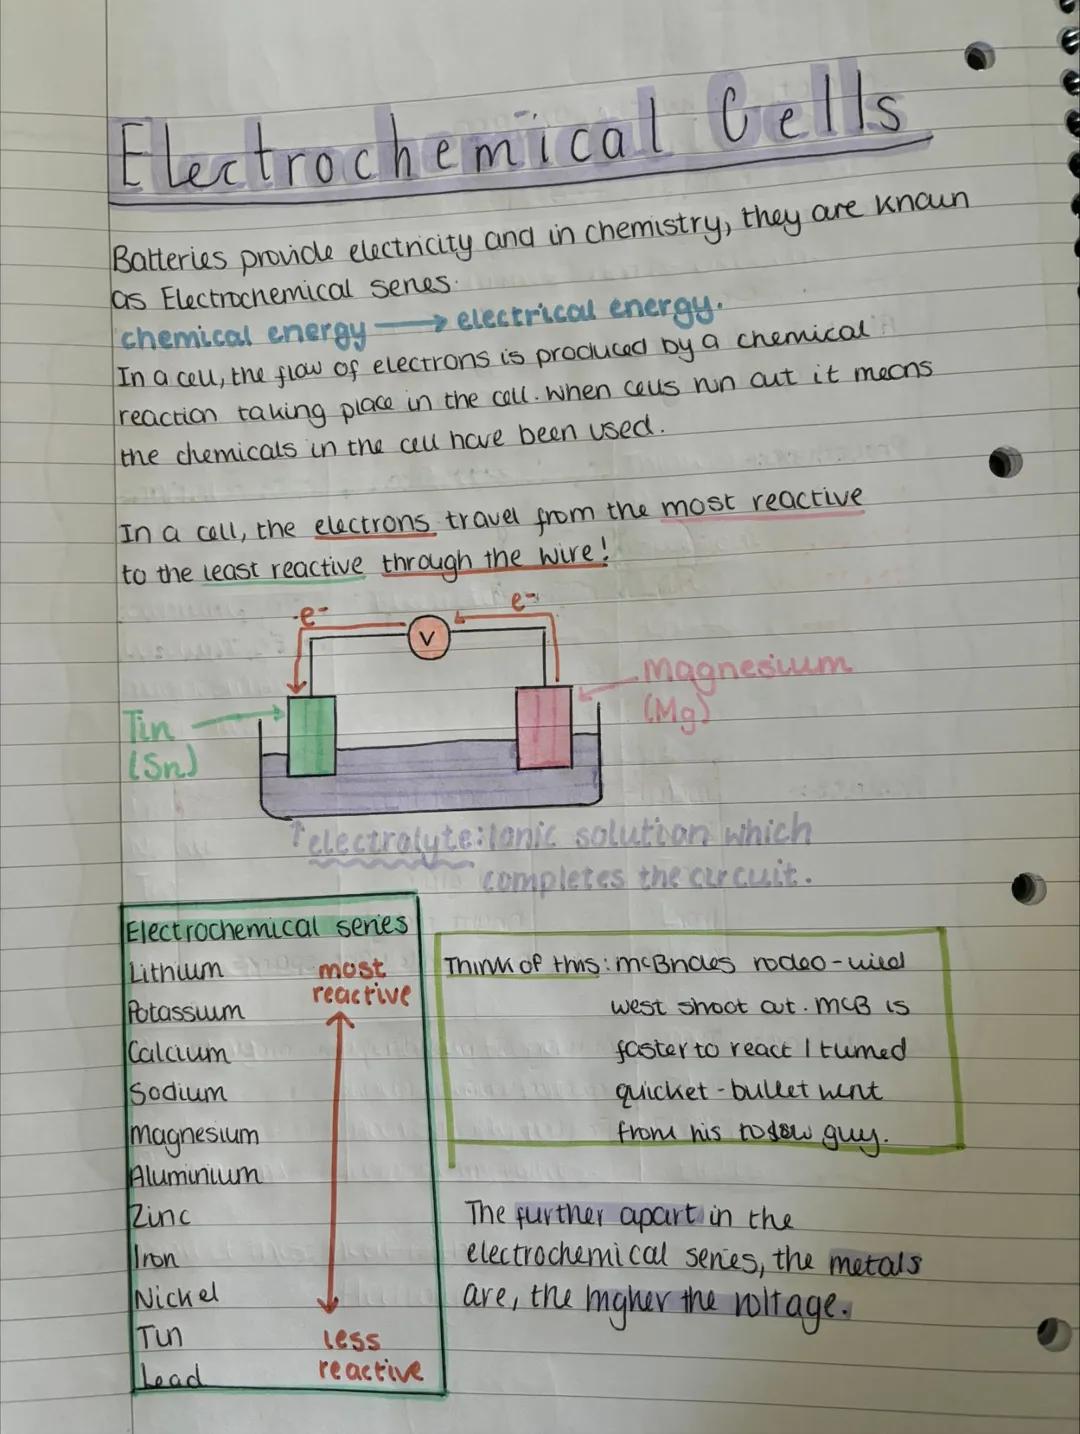 Electrochemical Cells
Batteries provide electricity and in chemistry, they are known
as Electrochemical series.
chemical energy → electrical energy.
In a cell, the flow of electrons is produced by a chemical
reaction taking place in the cell. When cells run out it means
the chemicals in the cell have been used.
In a cell, the electrons travel from the most reactive
to the least reactive through the wire!
e- e-
V
Magnesium
(Mg)
Tin
(Sn)
↑electrolyte: ionic solution which
completes the circuit.
Electrochemical series
Lithium
Potassium
Calcium
Sodium
Magnesium
Aluminium
Zinc
Iron
Nickel
Tin
Lead
most
reactive
less
reactive
Think of this: McBrides rodeo - wild
west shoot out. McB is
faster to react / turned
quicket - bullet went
from his to slow guy.
The further apart in the
electrochemical series, the metals
are, the higher the voltage.